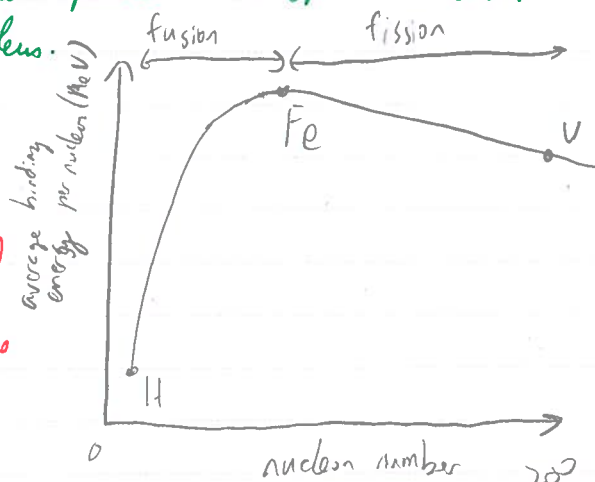 leus.
fusion
fission
Fe
U
average binding
energy per nucleon (MeV)
H
0
nucleon number
200